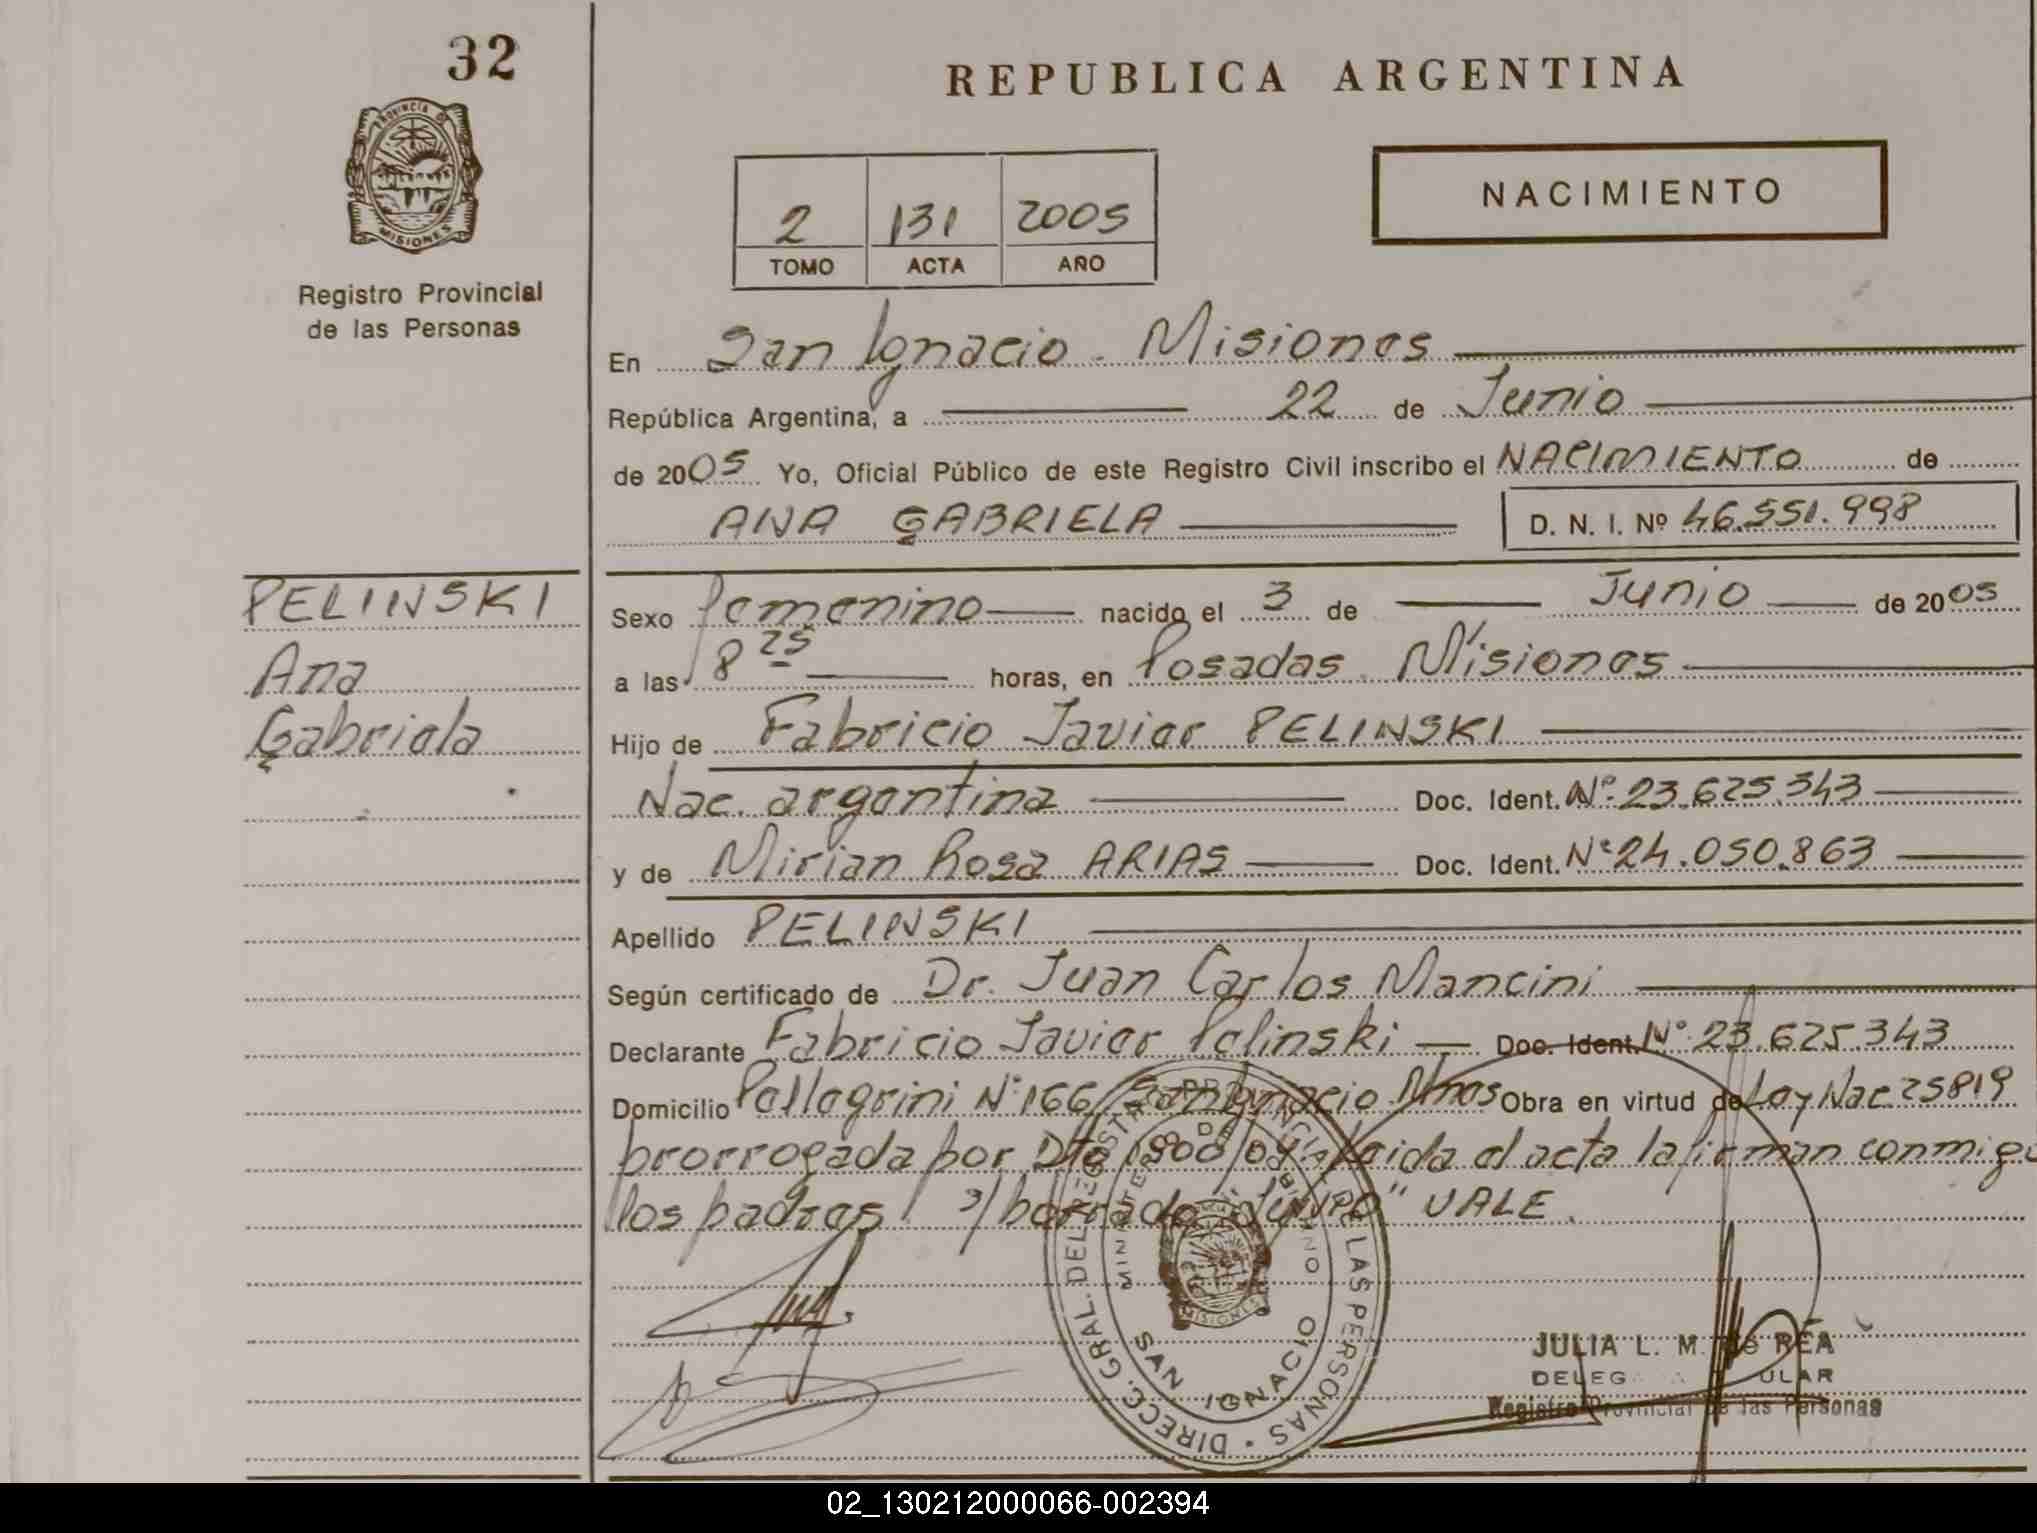 32
PROVINCIA DE
MISIONES
Registro Provincial
de las Personas
REPUBLICA ARGENTINA
NACIMIENTO
2 131 2005
TOMO ACTA AÑO
En San Ignacio - Misiones
República Argentina, a 22 de Junio
de 2005 Yo, Oficial Público de este Registro Civil inscribo el NACIMIENTO de
ANA GABRIELA D. N. I. Nº 46.551.998
PELINSKI
Ana
Gabriela
Sexo femenino nacido el 3 de Junio de 2005
a las 8 25 horas, en Posadas. Misiones
Hijo de Fabricio Javier PELINSKI
Nac. argentina Doc. Ident. Nº 23.625.343
y de Mirian Rosa ARIAS Doc. Ident. Nº 24.050.863
Apellido PELINSKI
Según certificado de Dr. Juan Carlos Mancini
Declarante Fabricio Javier Pelinski Doc. Ident. Nº 23.625.343
Domicilio Pellegrini Nº 166 San Ignacio Mnes Obra en virtud de Ley Nac 25819
prorrogada por Dto 1900/04. Leida el acta la firman conmigo
los padres s/borrado "JUNIO" VALE.
DIRECC. GRAL. DEL REGISTRO PROVINCIAL DE LAS PERSONAS
SAN IGNACIO
MISIONES
JULIA L. M. de REA
Registro Provincial de las Personas
02_130212000066-002394